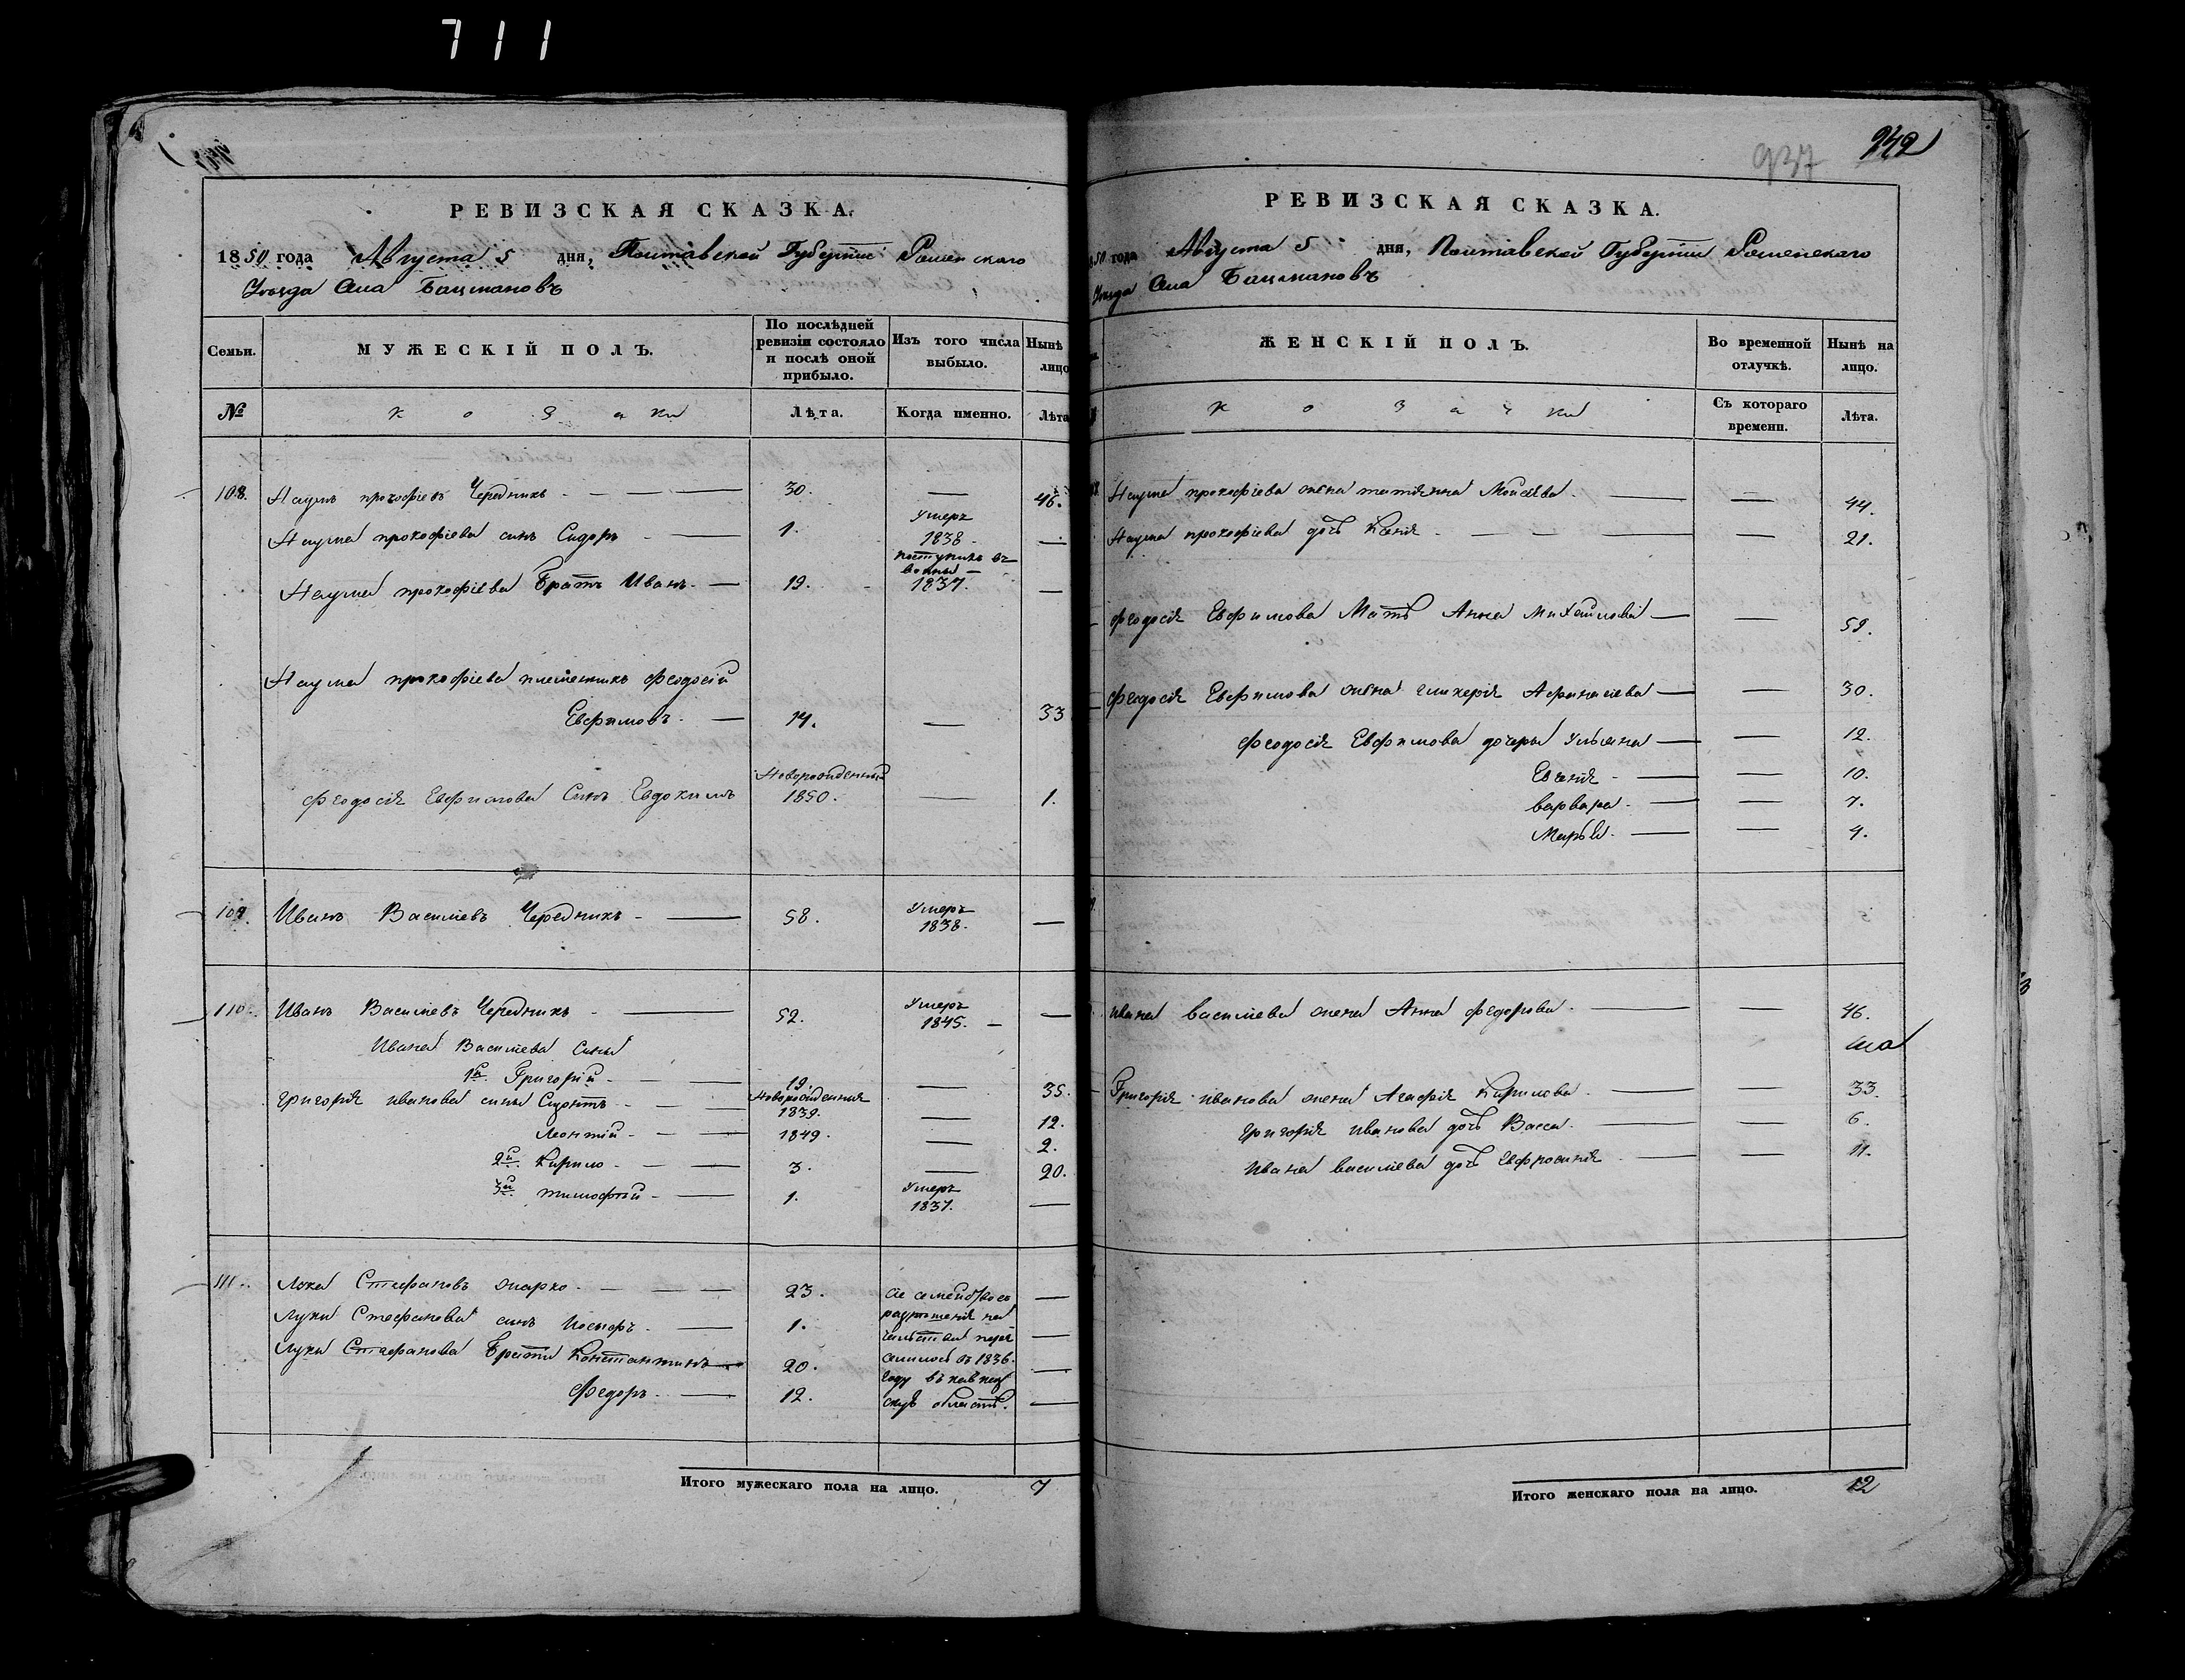 711
РЕВИЗСКАЯ СКАЗКА.
1850 года Августа 5 дня, Полтавской Губернии Роменскаго
Уезда Села Бацмановъ
Семьи.
МУЖЕСКІЙ ПОЛЪ.
По послѣдней ревизіи состояло и послѣ оной прибыло.
Изъ того числа выбыло.
Нынѣ
лицо
№
козаки
Лѣта.
Когда именно.
Лѣта
108. Наумъ прокофіевъ Чередникъ - 30. — 46.
Наума прокофіева синъ Сидоръ - 1. Умеръ 1838 - —
Наума прокофіева Братъ Иванъ - 19. поступилъ въ 1837. —
Наума прокофіева племенникъ Феодосій
Евфимовъ. — 14. — 33
Феодосія Евфимова Синъ Евдокимъ Новорожденный 1850. — 1.
109. Иванъ Василіевъ Чередникъ - 58. Умеръ 1838. —
110. Иванъ Василіевъ Чередникъ - 52. Умеръ 1845. — —
Ивана Василіева Сины
1й Григорій - 19. — 35.
Григорія иванова сины Новорожденния 1839. — 12.
Леонтій - 1849. — 2.
2й Кирило - 3. — 20.
3й тимофей - 1. Умеръ 1837. —
111. Лука Стефановъ Шарко - 23. —
Луки Стефанова синъ Иосифъ - 1. —
Луки Стефанова Братя Константинъ 20. —
Федоръ - 12. —
Сіе семейство съ
разрешенія на
чальства пере
селилось въ 1836.
году въ кавказ
скую область.
Итого мужескаго пола на лицо. 7
937 942
РЕВИЗСКАЯ СКАЗКА.
50 года Августа 5 дня, Полтавской Губернии Роменскаго
Уезда Села Бацмановъ
ЖЕНСКІЙ ПОЛЪ.
Во временной отлучкѣ.
Нынѣ на лицо.
козачки
Съ котораго времени.
Лѣта.
Наума прокофіева жена татіяна Моисеева - — 44.
Наума прокофіева дочь Ксенія - — 21.
Феодосія Евфимова Мать Анна Михайлова — — 59.
Феодосія Евфимова жена гликерія Афанасіева — — 30.
Феодосія Евфимова дочери Уліяна — — 12.
Евгенія - — 10.
варвара - — 7.
Марья - — 4.
ивана василіева жена Анна федорова - — 46.
Григорія иванова жена Агафія Кирилова - — 33.
григорія иванова дочь Васса - — 6.
ивана василіева дочь Евфросинія - — 11.
Итого женскаго пола на лицо. 12